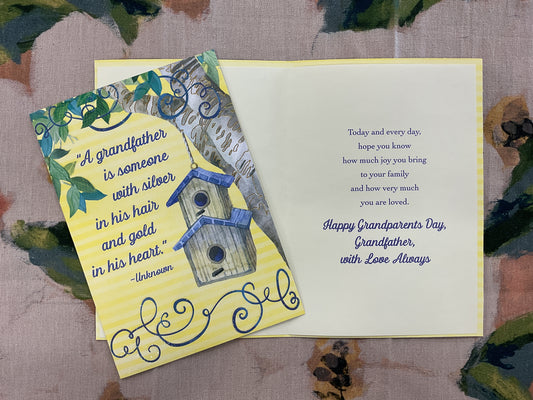 "A grandfather
is someone
with silver
in his hair
and gold
in his heart."
~Unknown
Today and every day,
hope you know
how much joy you bring
to your family
and how very much
you are loved.
Happy Grandparents Day,
Grandfather,
with Love Always